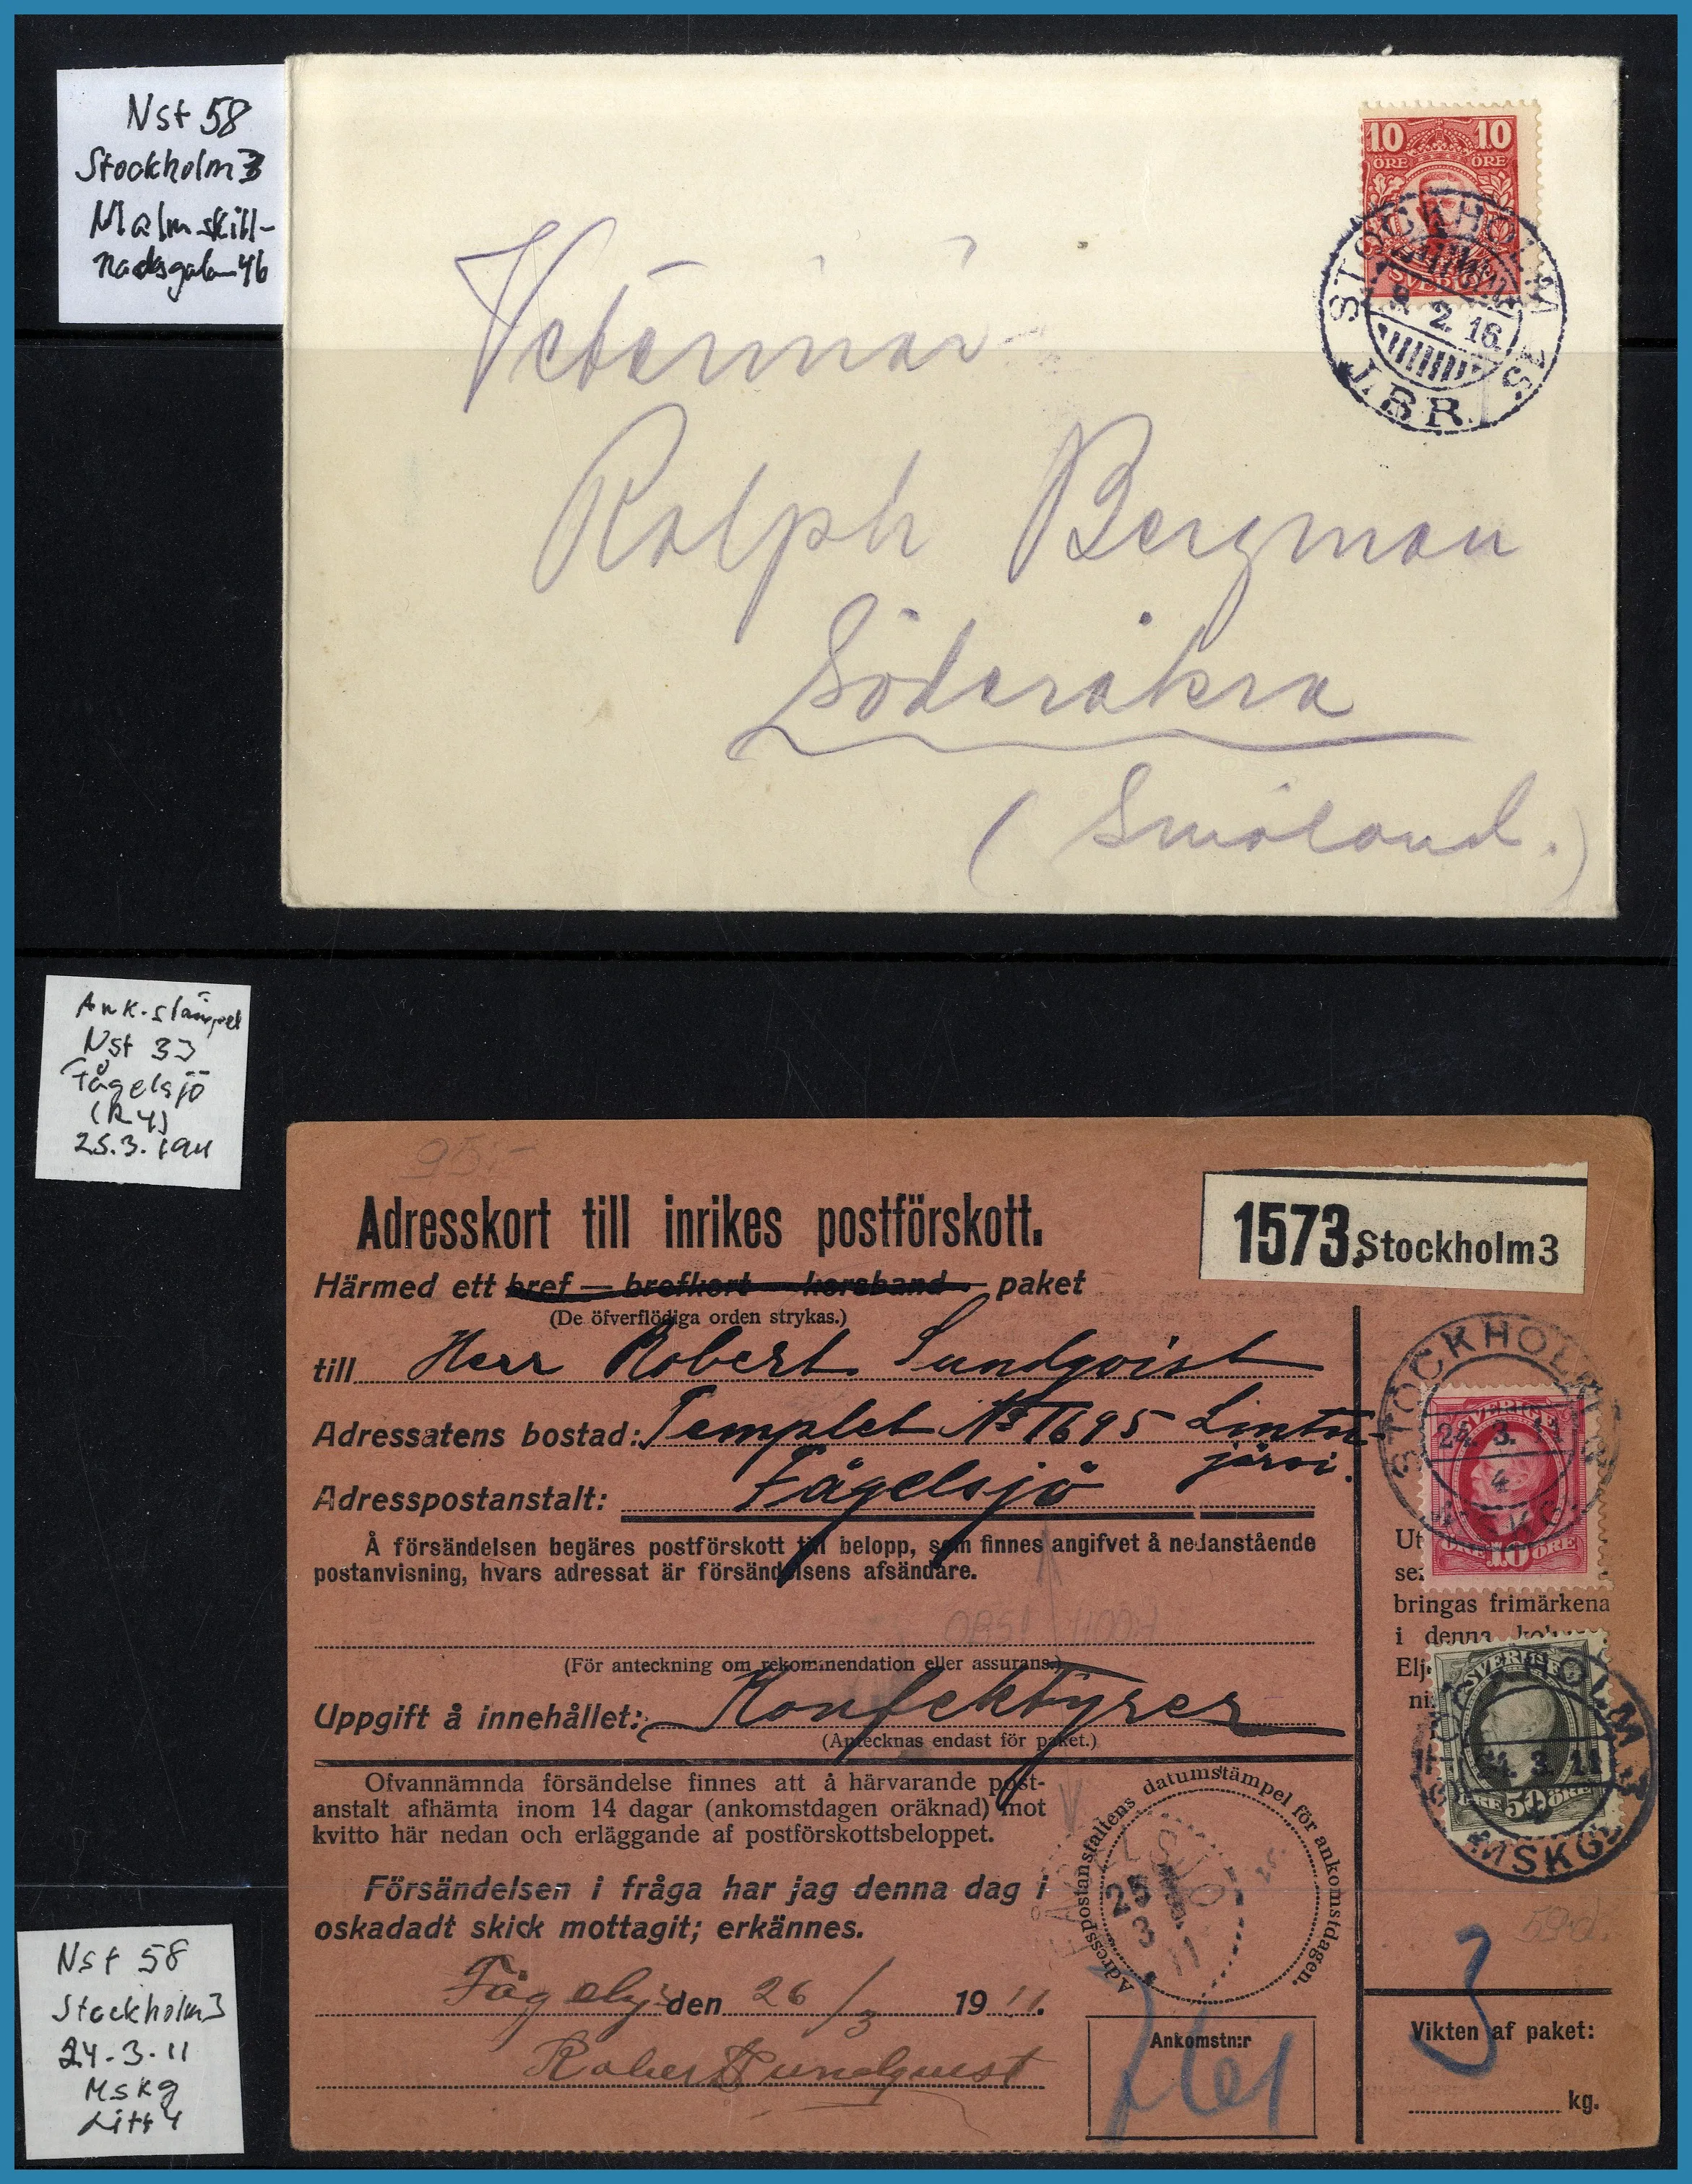 Nst 58
Stockholm 3
Malmskill-
nadsgatan 46
10 10
ÖRE ÖRE
SVERIGE
STOCKHOLM 15.
9. 2. 16.
1.BR.
Veterinär
Ralph Bergman
Söderåkra
(Småland.)
Ank.stämpel
Nst 33
Fågelsjö
(R 4)
25.3.1911
95:-
Adresskort till inrikes postförskott.
1573. Stockholm 3
Härmed ett bref — brefkort — korsband — paket
(De öfverflödiga orden strykas.)
till Herr Robert Sundqvist
Adressatens bostad: Templet No 1695 Lintu-
järvi.
Adresspostanstalt: Fågelsjö
Å försändelsen begäres postförskott till belopp, som finnes angifvet å nedanstående
postanvisning, hvars adressat är försändelsens afsändare.
(För anteckning om rekommendation eller assurans.)
Uppgift å innehållet: Konfektyrer
(Antecknas endast för paket.)
STOCKHOLM 3
24. 3. 11
4
MSKG
SVERIGE
10 ÖRE
Ut
se
bringas frimärkena
i denna
Elj
ni
SVERIGE
50 ÖRE
STOCKHOLM 3
24. 3. 11
MSKG
Ofvannämnda försändelse finnes att å härvarande post-
anstalt afhämta inom 14 dagar (ankomstdagen oräknad) mot
kvitto här nedan och erläggande af postförskottsbeloppet.
Försändelsen i fråga har jag denna dag i
oskadadt skick mottagit; erkännes.
Adresspostanstaltens datumstämpel för ankomstdagen.
FÅGELSJÖ
25
3
11
Fågelsjö den 26/3 1911.
Robert Sundquist
Ankomstn:r
3
Vikten af paket:
kg.
Nst 58
Stockholm 3
24-3-11
MSKg
Litt 4